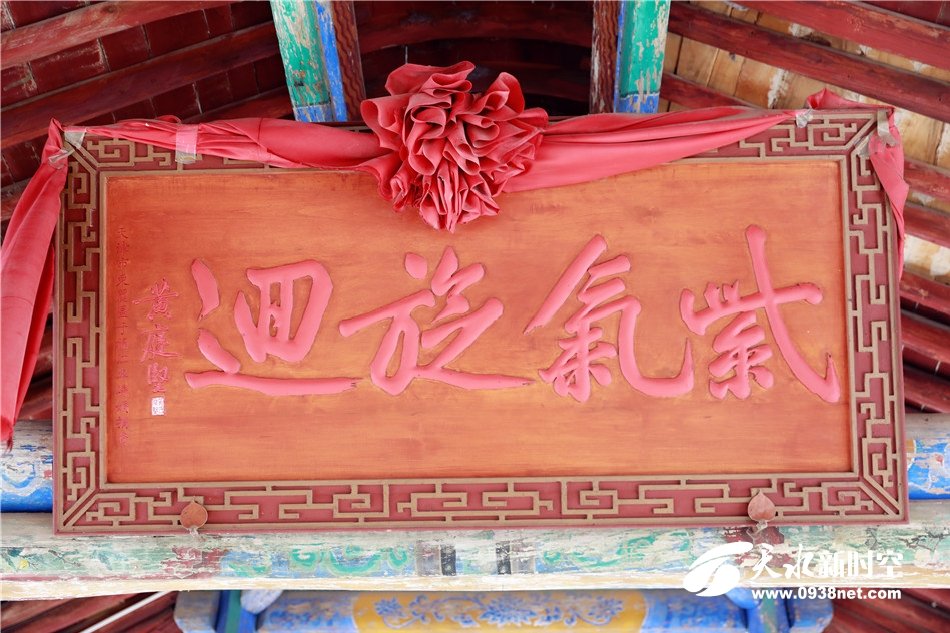 紫氣旋迴
黃庭堅
天水新时空
www.0938net.com